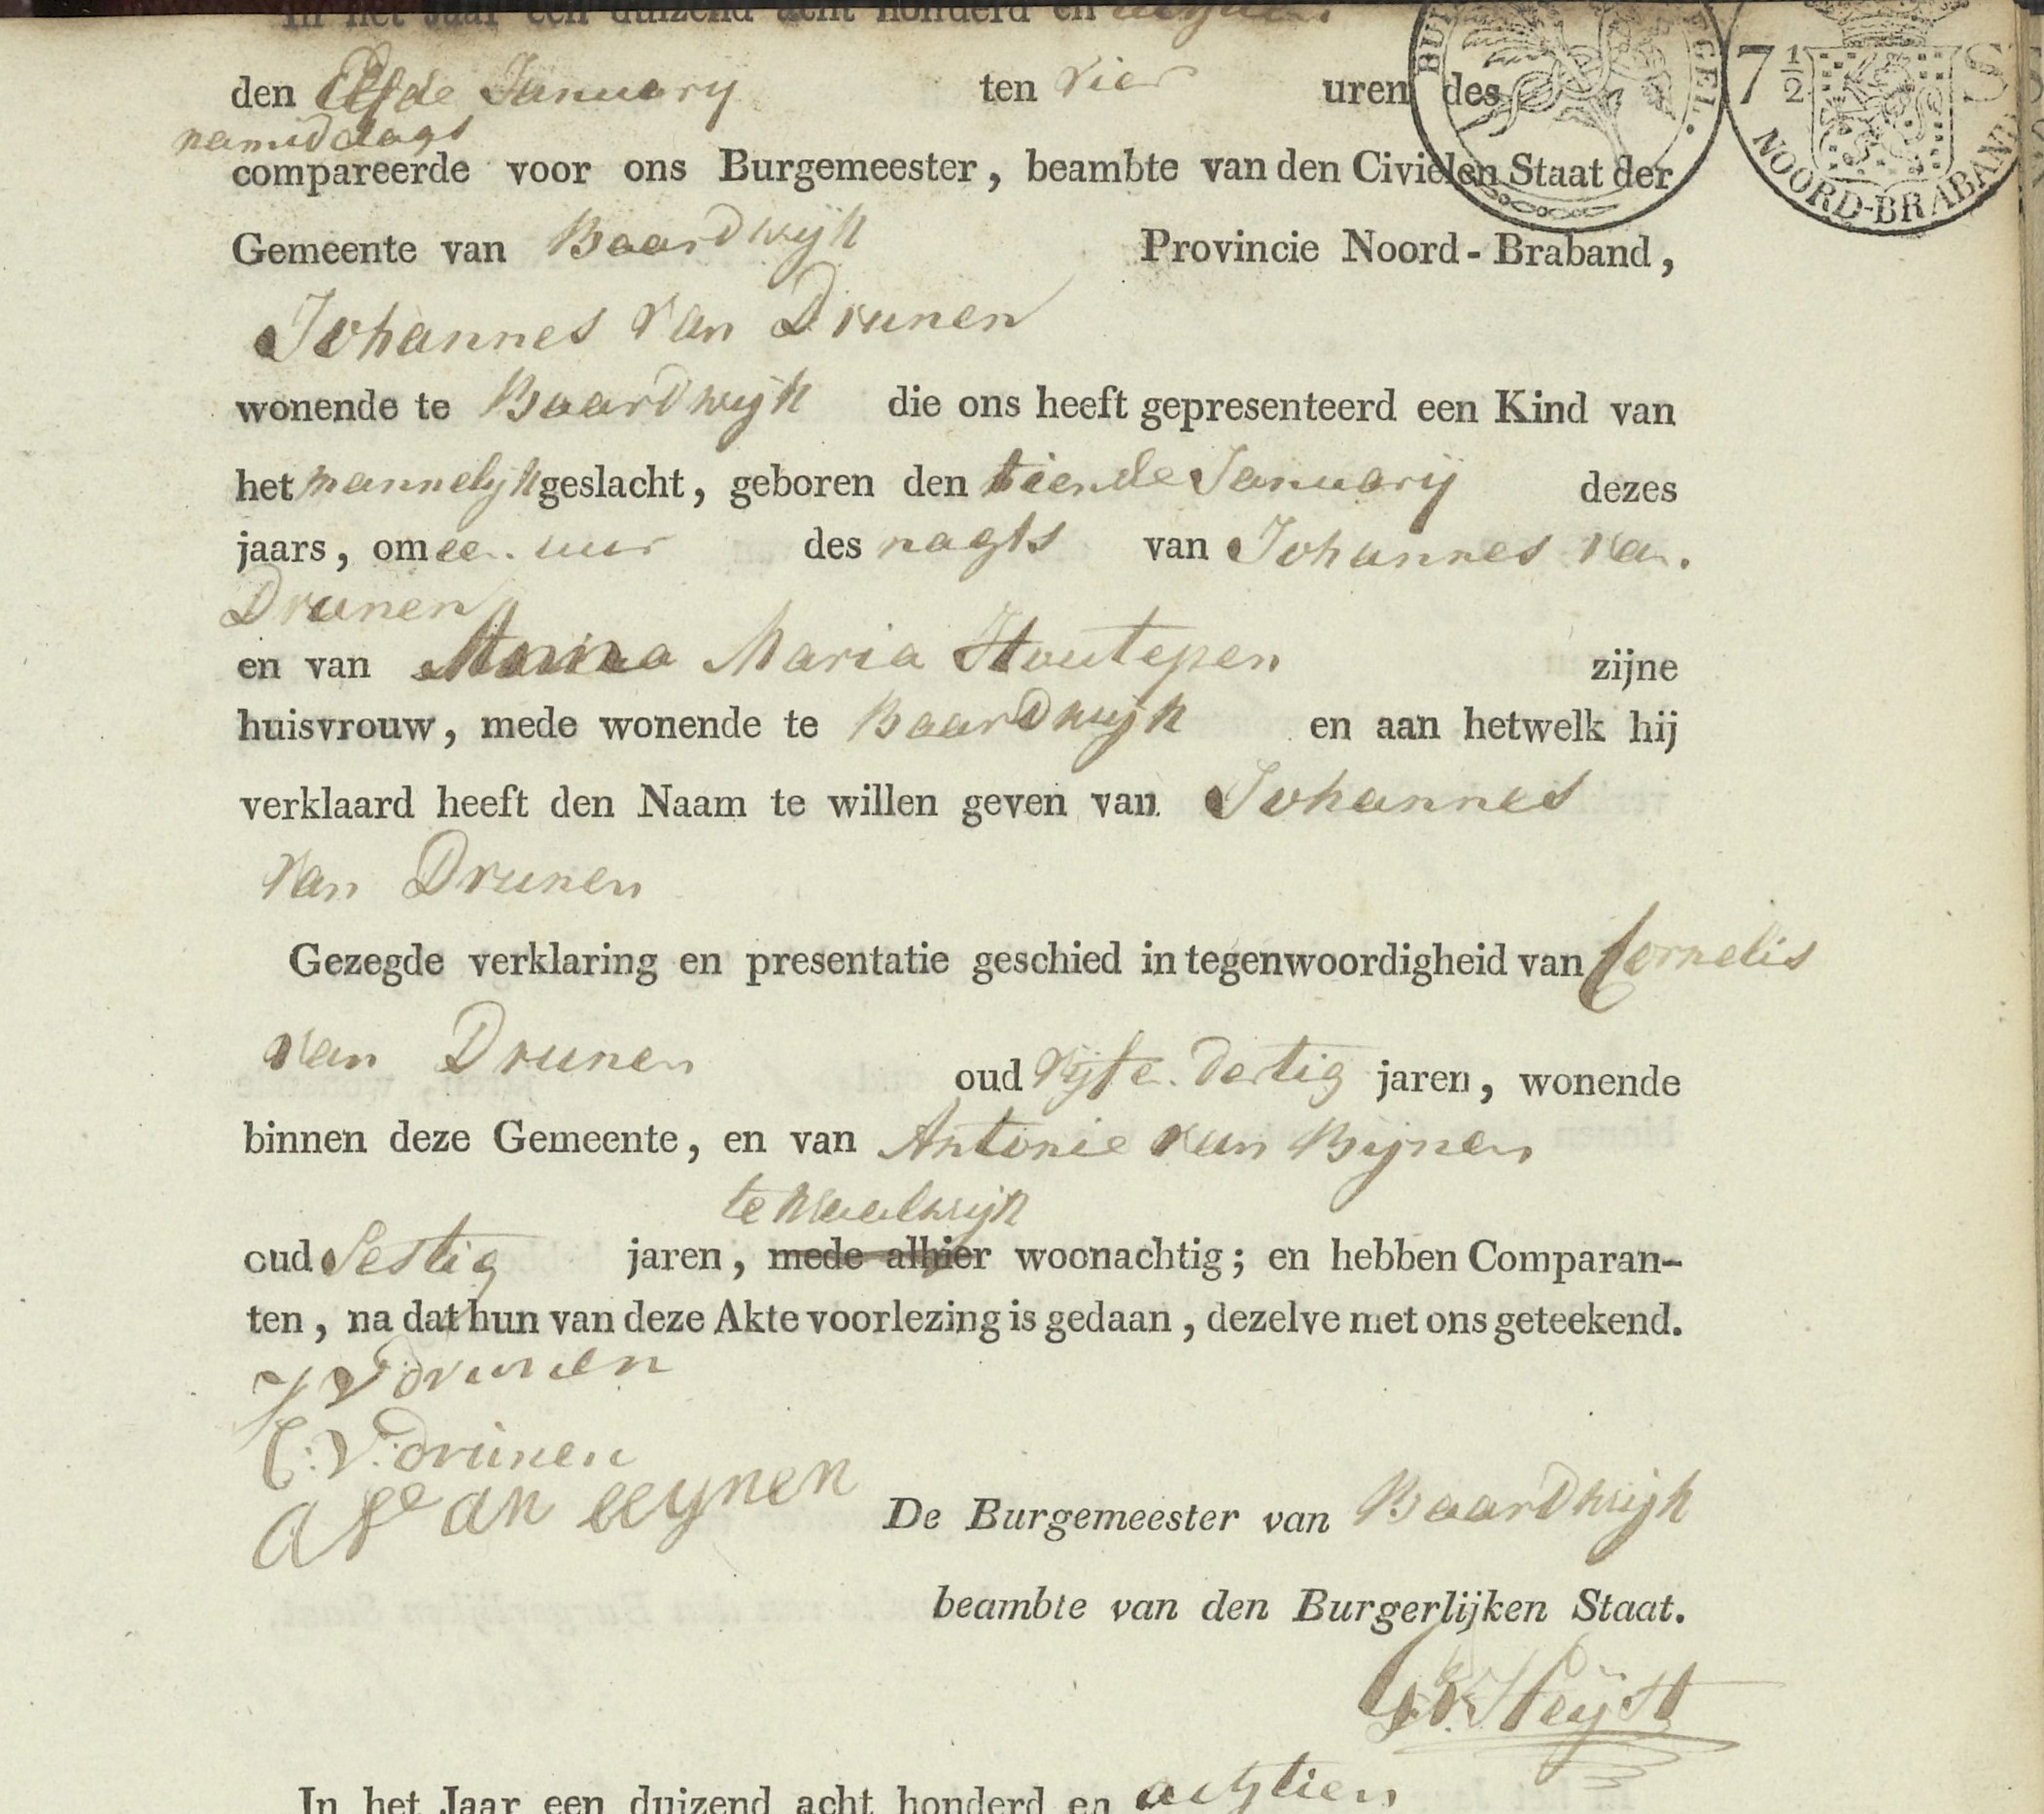 In het Jaar een duizend acht honderd en
den Elfde January ten vier uren des
namiddags
compareerde voor ons Burgemeester, beambte van den Civielen Staat der
Gemeente van Baardwijk Provincie Noord-Braband,
Johannes van Drunen
wonende te Baardwijk die ons heeft gepresenteerd een Kind van
het mannelyk geslacht, geboren den tiende January dezes
jaars, om een uur des nagts van Johannes van
Drunen
en van Maria Houtepen zijne
huisvrouw, mede wonende te Baardwijk en aan hetwelk hij
verklaard heeft den Naam te willen geven van Johannes
van Drunen
Gezegde verklaring en presentatie geschied in tegenwoordigheid van Cornelis
van Drunen oud vyf en dertig jaren, wonende
binnen deze Gemeente, en van Antonie van Bijnen
te Waalwijk
oud Sestig jaren, mede alhier woonachtig; en hebben Comparan-
ten, na dat hun van deze Akte voorlezing is gedaan, dezelve met ons geteekend.
J V Drunen
C: V: Drunen
A van
De Burgemeester van Baardwijk
beambte van den Burgerlijken Staat.
Heyst
In het Jaar een duizend acht honderd en achtien
7 1/2 S
NOORD-BRABAND